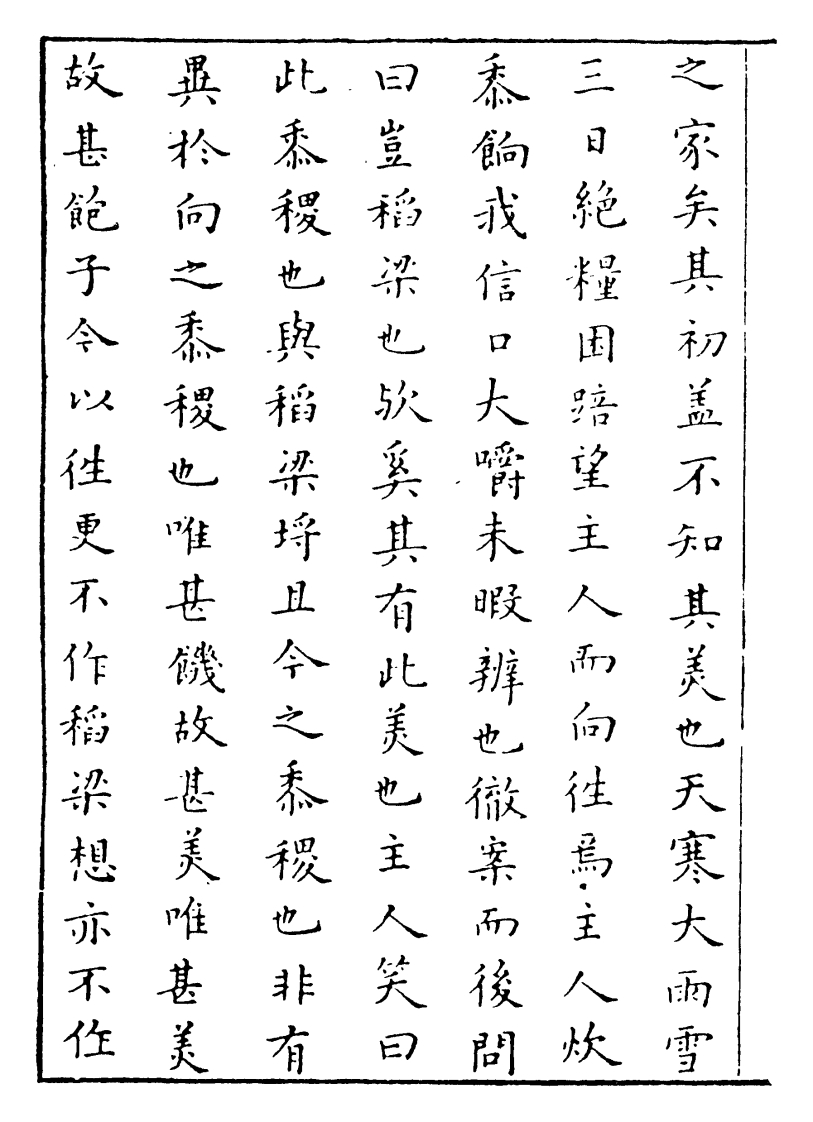 之家矣其初盖不知其美也天寒大雨雪
三日絶糧困踣望主人而向徃焉主人炊
黍餉我信口大嚼未暇辨也徹案而後問
曰豈稻梁也歟奚其有此美也主人笑曰
此黍稷也與稻梁埒且今之黍稷也非有
異於向之黍稷也唯甚饑故甚美唯甚美
故甚飽子今以徃更不作稻梁想亦不作